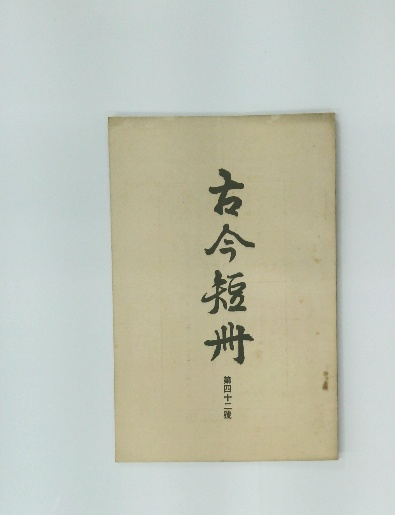 古今短冊
第四十二號